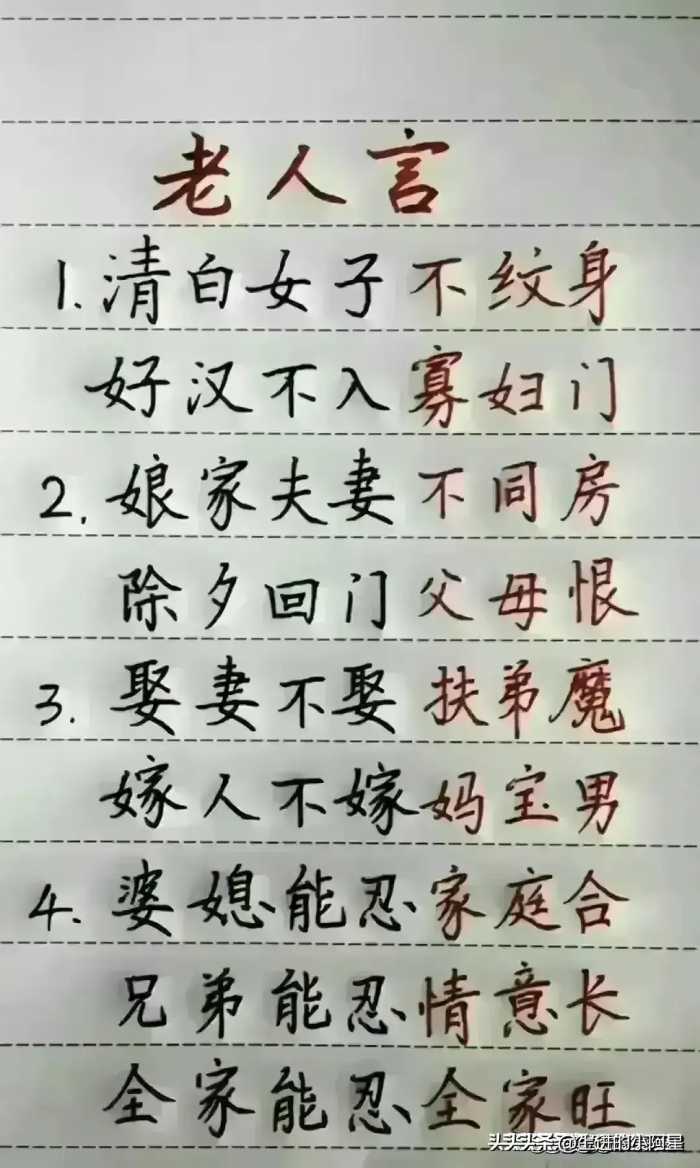 老人言
1.清白女子不纹身
好汉不入寡妇门
2.娘家夫妻不同房
除夕回门父母恨
3.娶妻不娶扶弟魔
嫁人不嫁妈宝男
4.婆媳能忍家庭合
兄弟能忍情意长
全家能忍全家旺